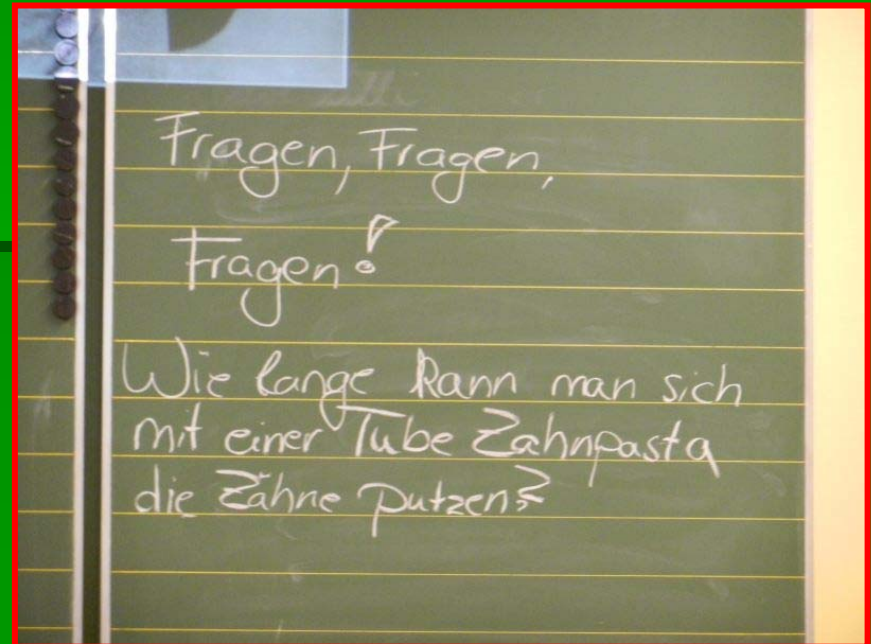 Fragen, Fragen,
Fragen!
Wie lange kann man sich
mit einer Tube Zahnpasta
die Zähne putzen?